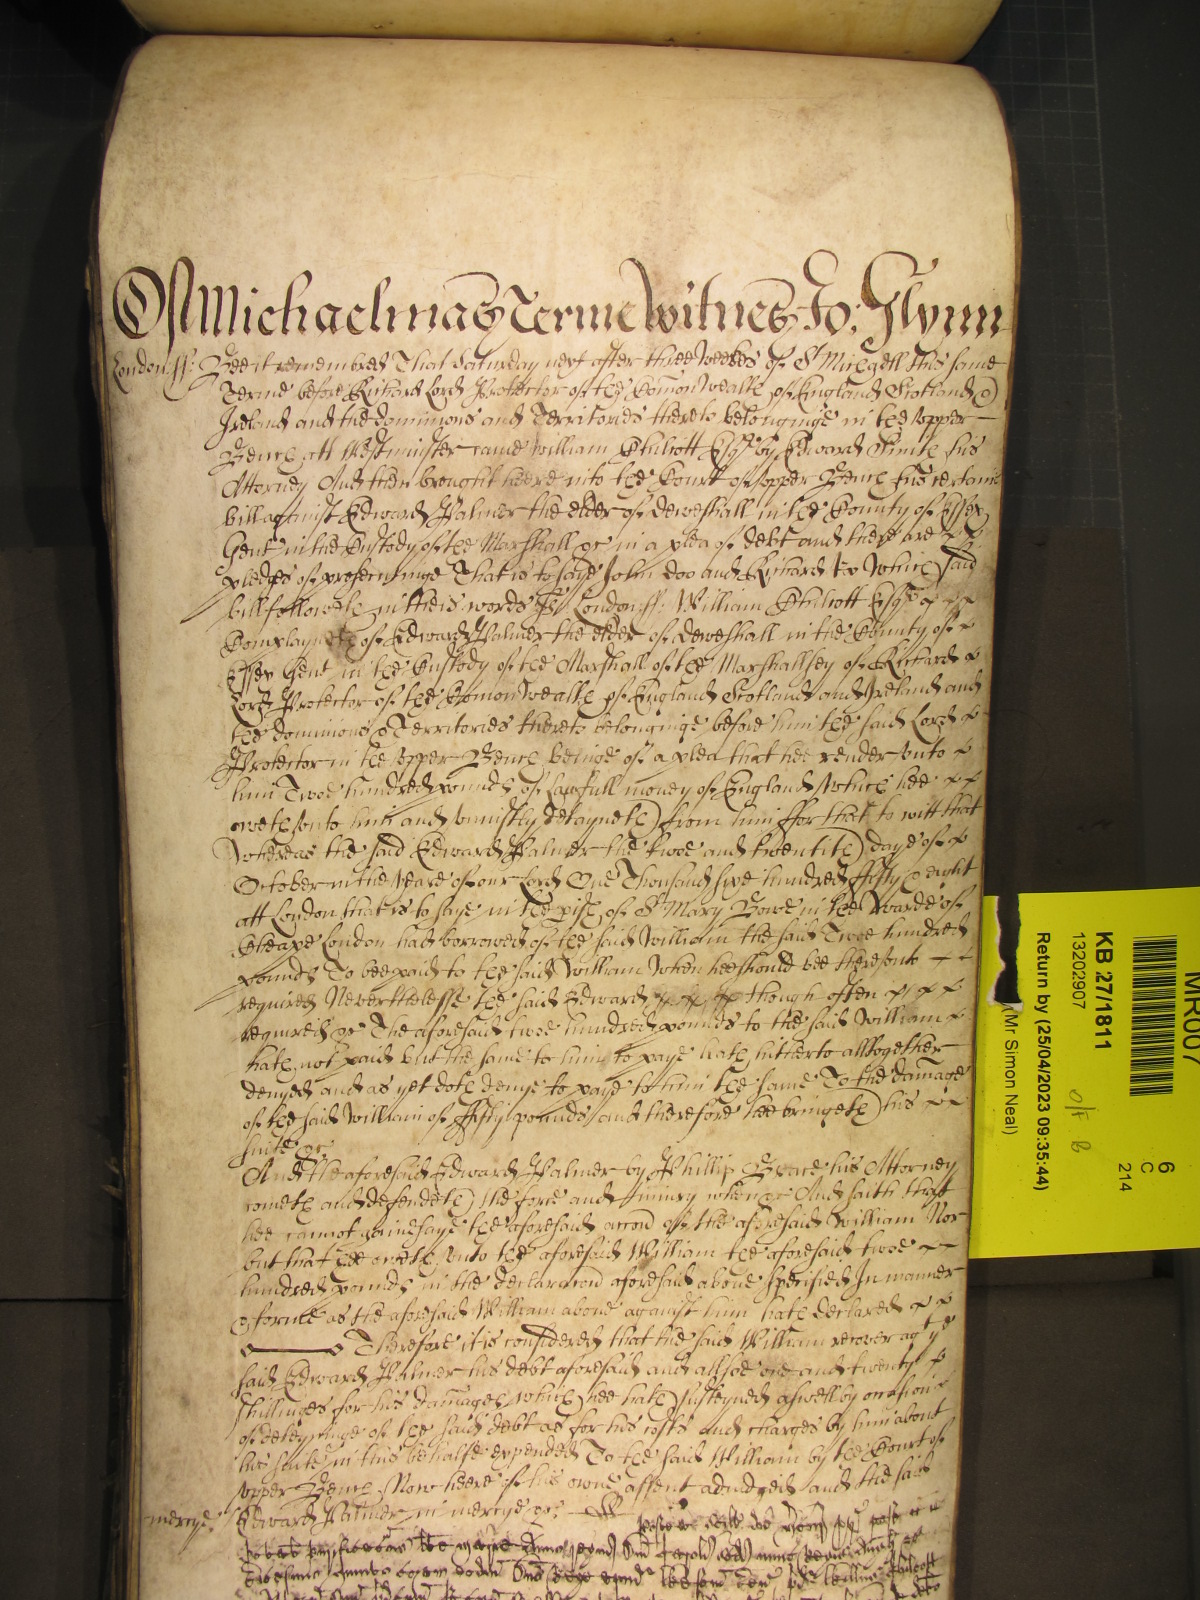 Of Michaelmas Terme Witnes Jo: Glynn
London ss: Bee it remembred That Saturday next after three Weekes of St Michaell this same
Terme before Richard Lord Protector of the Comon Wealth of England Scotland &
Ireland and the dominions and Territories thereto belonginge in the upper
Bench att Westminster came William Chilcott Esqr by Edward Smith his
Attorney And then brought heere into the Court of upper Bench his certaine
bill against Edward Palmer the elder of Deweshall in the County of Essex
Gent in the Custody of the Marshall &c in a plea of debt and there are
pledges of prosecutinge That is to saye John Doo and Richard Roo Which said
bill followeth in theis words ss London ss: William Chilcott Esqr
Complayneth of Edward Palmer the elder of Deweshall in the County of
Essex Gent in the Custody of the Marshall of the Marshallsey of Richard
Lord Protector of the Comon Wealth of England Scotland and Ireland and
the dominions & Territories thereto belonginge before him the said Lord
Protector in the upper Bench beinge of a plea that hee render unto
him Twoe hundred pounds of lawfull money of England which hee
oweth unto him and uniustly detayneth from him ffor that to witt that
Whereas the said Edward Palmer the twoe and twentith daye of
October in the yeare of our Lord One Thousand sixe hundred ffifty & eight
att London that is to saye in the pish of St Mary Bowe in the Warde of
Cheape London had borrowed of the said William the said Twoe hundred
pounds To bee paid to the said William When hee should bee thereunto
required Neverthelesse the said Edward though often
required &c The aforesaid twoe hundred pounds to the said William
hath not paid but the same to him to paye hath hitherto alltogether
denyed and as yet doth denye to paye to him the same To the damage
of the said William of ffifty pounds and therefore hee bringeth his
suite &c
And the aforesaid Edward Palmer by Phillip Brace his Attorney
cometh and defendeth the force and Iniury when &c And saith that
hee cannot gainesaye the aforesaid accon of the aforesaid William Nor
but that hee oweth unto the aforesaid William the aforesaid twoe
hundred pounds in the declaracon aforesaid above specified In manner
& forme as the aforesaid William above against him hath declared
Therefore it is considered that the said William recover agt ye
said Edward Palmer his debt aforesaid and allsoe one and twenty
shillinges for his damages which hee hath susteyned aswell by occasion
of deteyninge of the said debt as for his costs and charges by him about
his suite in this behalfe expended To the said William by the Court of
upper Bench Now heere of his owne assent adiudged And the said
mercye. Edward Palmer in mercye &c
MR007
KB 27/1811
13202907
Return by (25/04/2023 09:35:44)
(Mr Simon Neal)
6
C
214